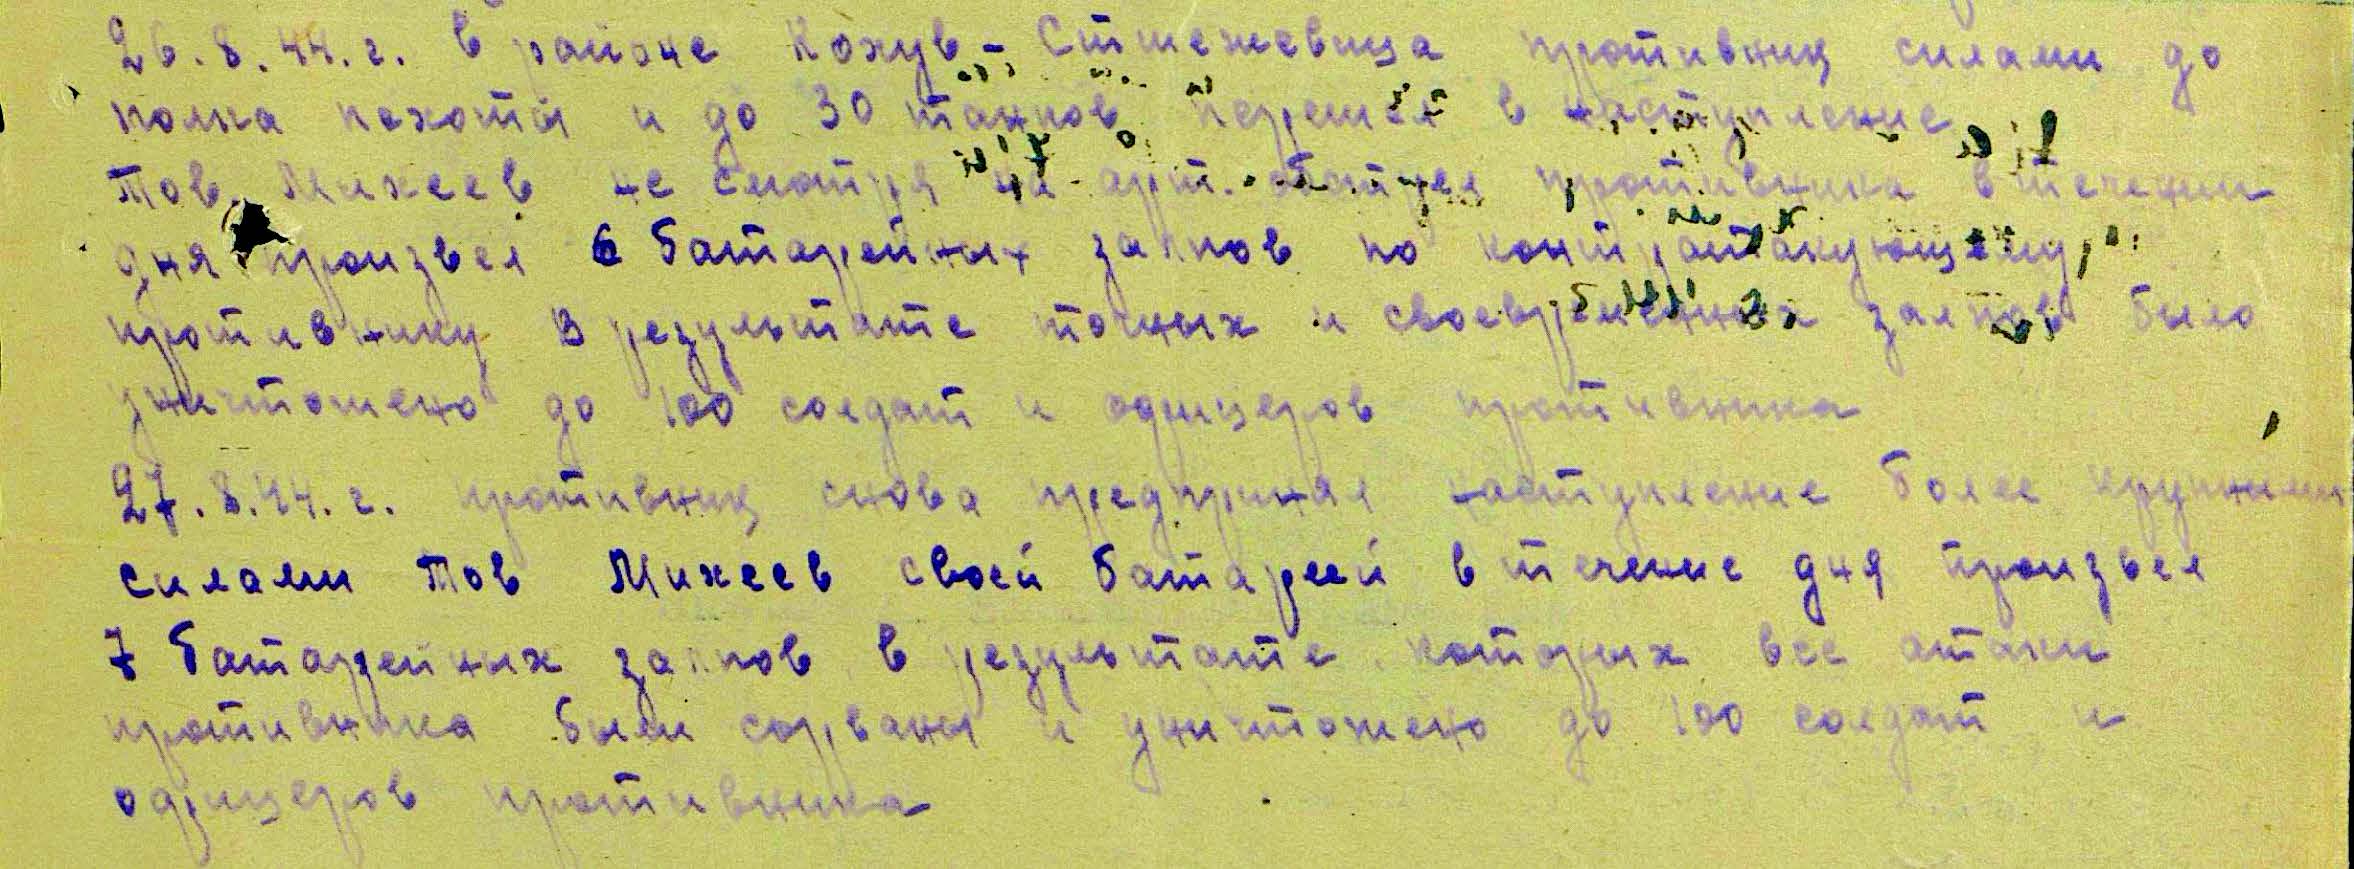 26.8.44.г. в районе Кожув - Стшежевица противник силами до
полка пехоты и до 30 танков перешел в наступление
Тов. Михеев не смотря на арт. обстрел противника в течении
дня произвел 6 батарейных залпов по контратакующему
противнику В результате точных и своевременных залпов было
уничтожено до 100 солдат и офицеров противника
27.8.44.г. противник снова предпринял наступление более крупными
силами Тов Михеев своей батареей в течение дня произвел
7 батарейных залпов в результате которых все атаки
противника были сорваны и уничтожено до 100 солдат и
офицеров противника